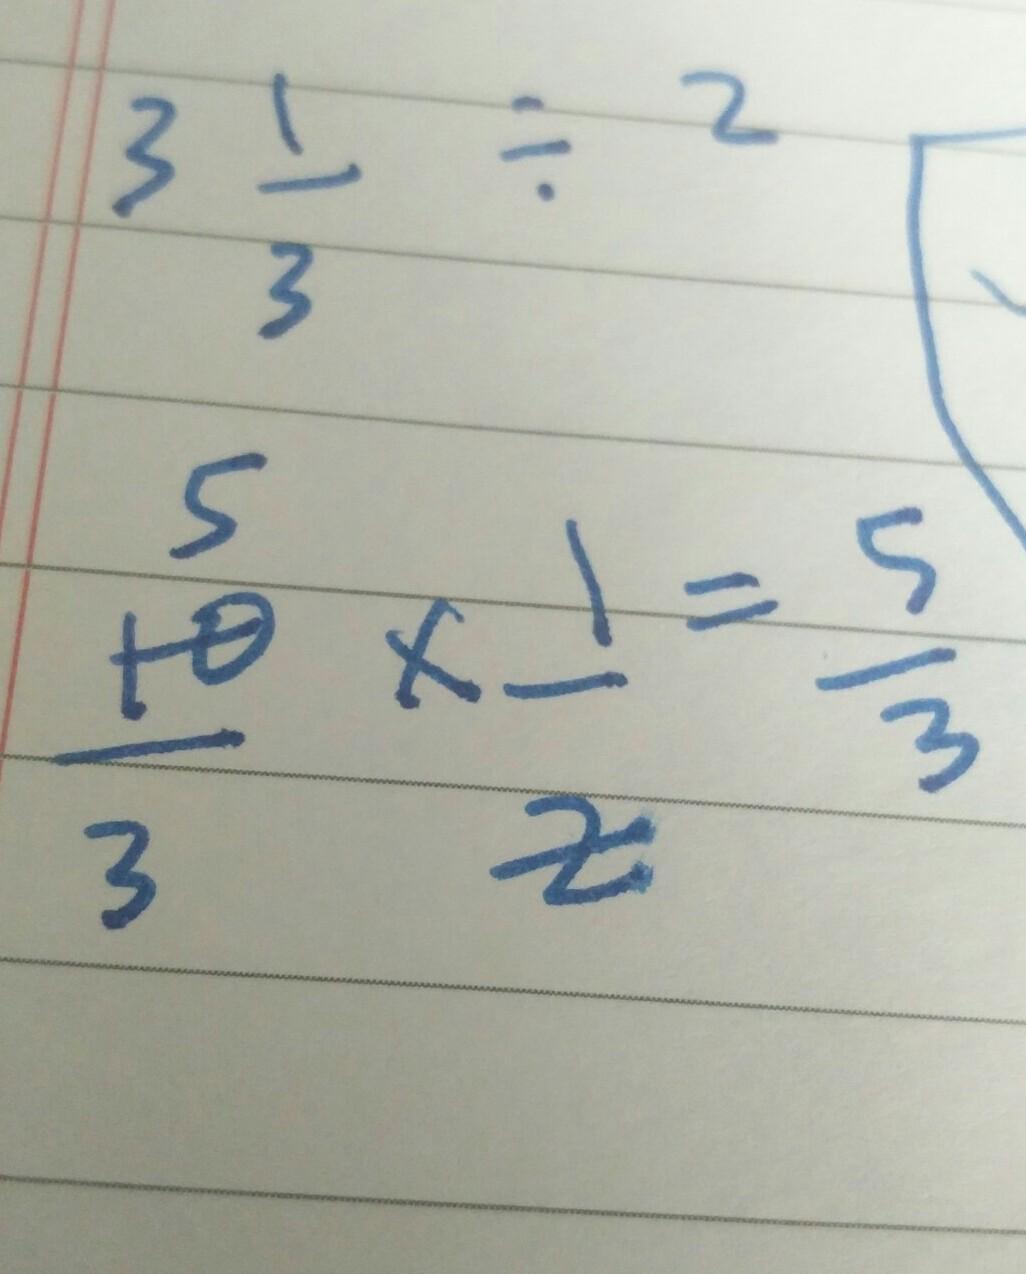 3 1/3 ÷ 2
5
10/3 × 1/2 = 5/3